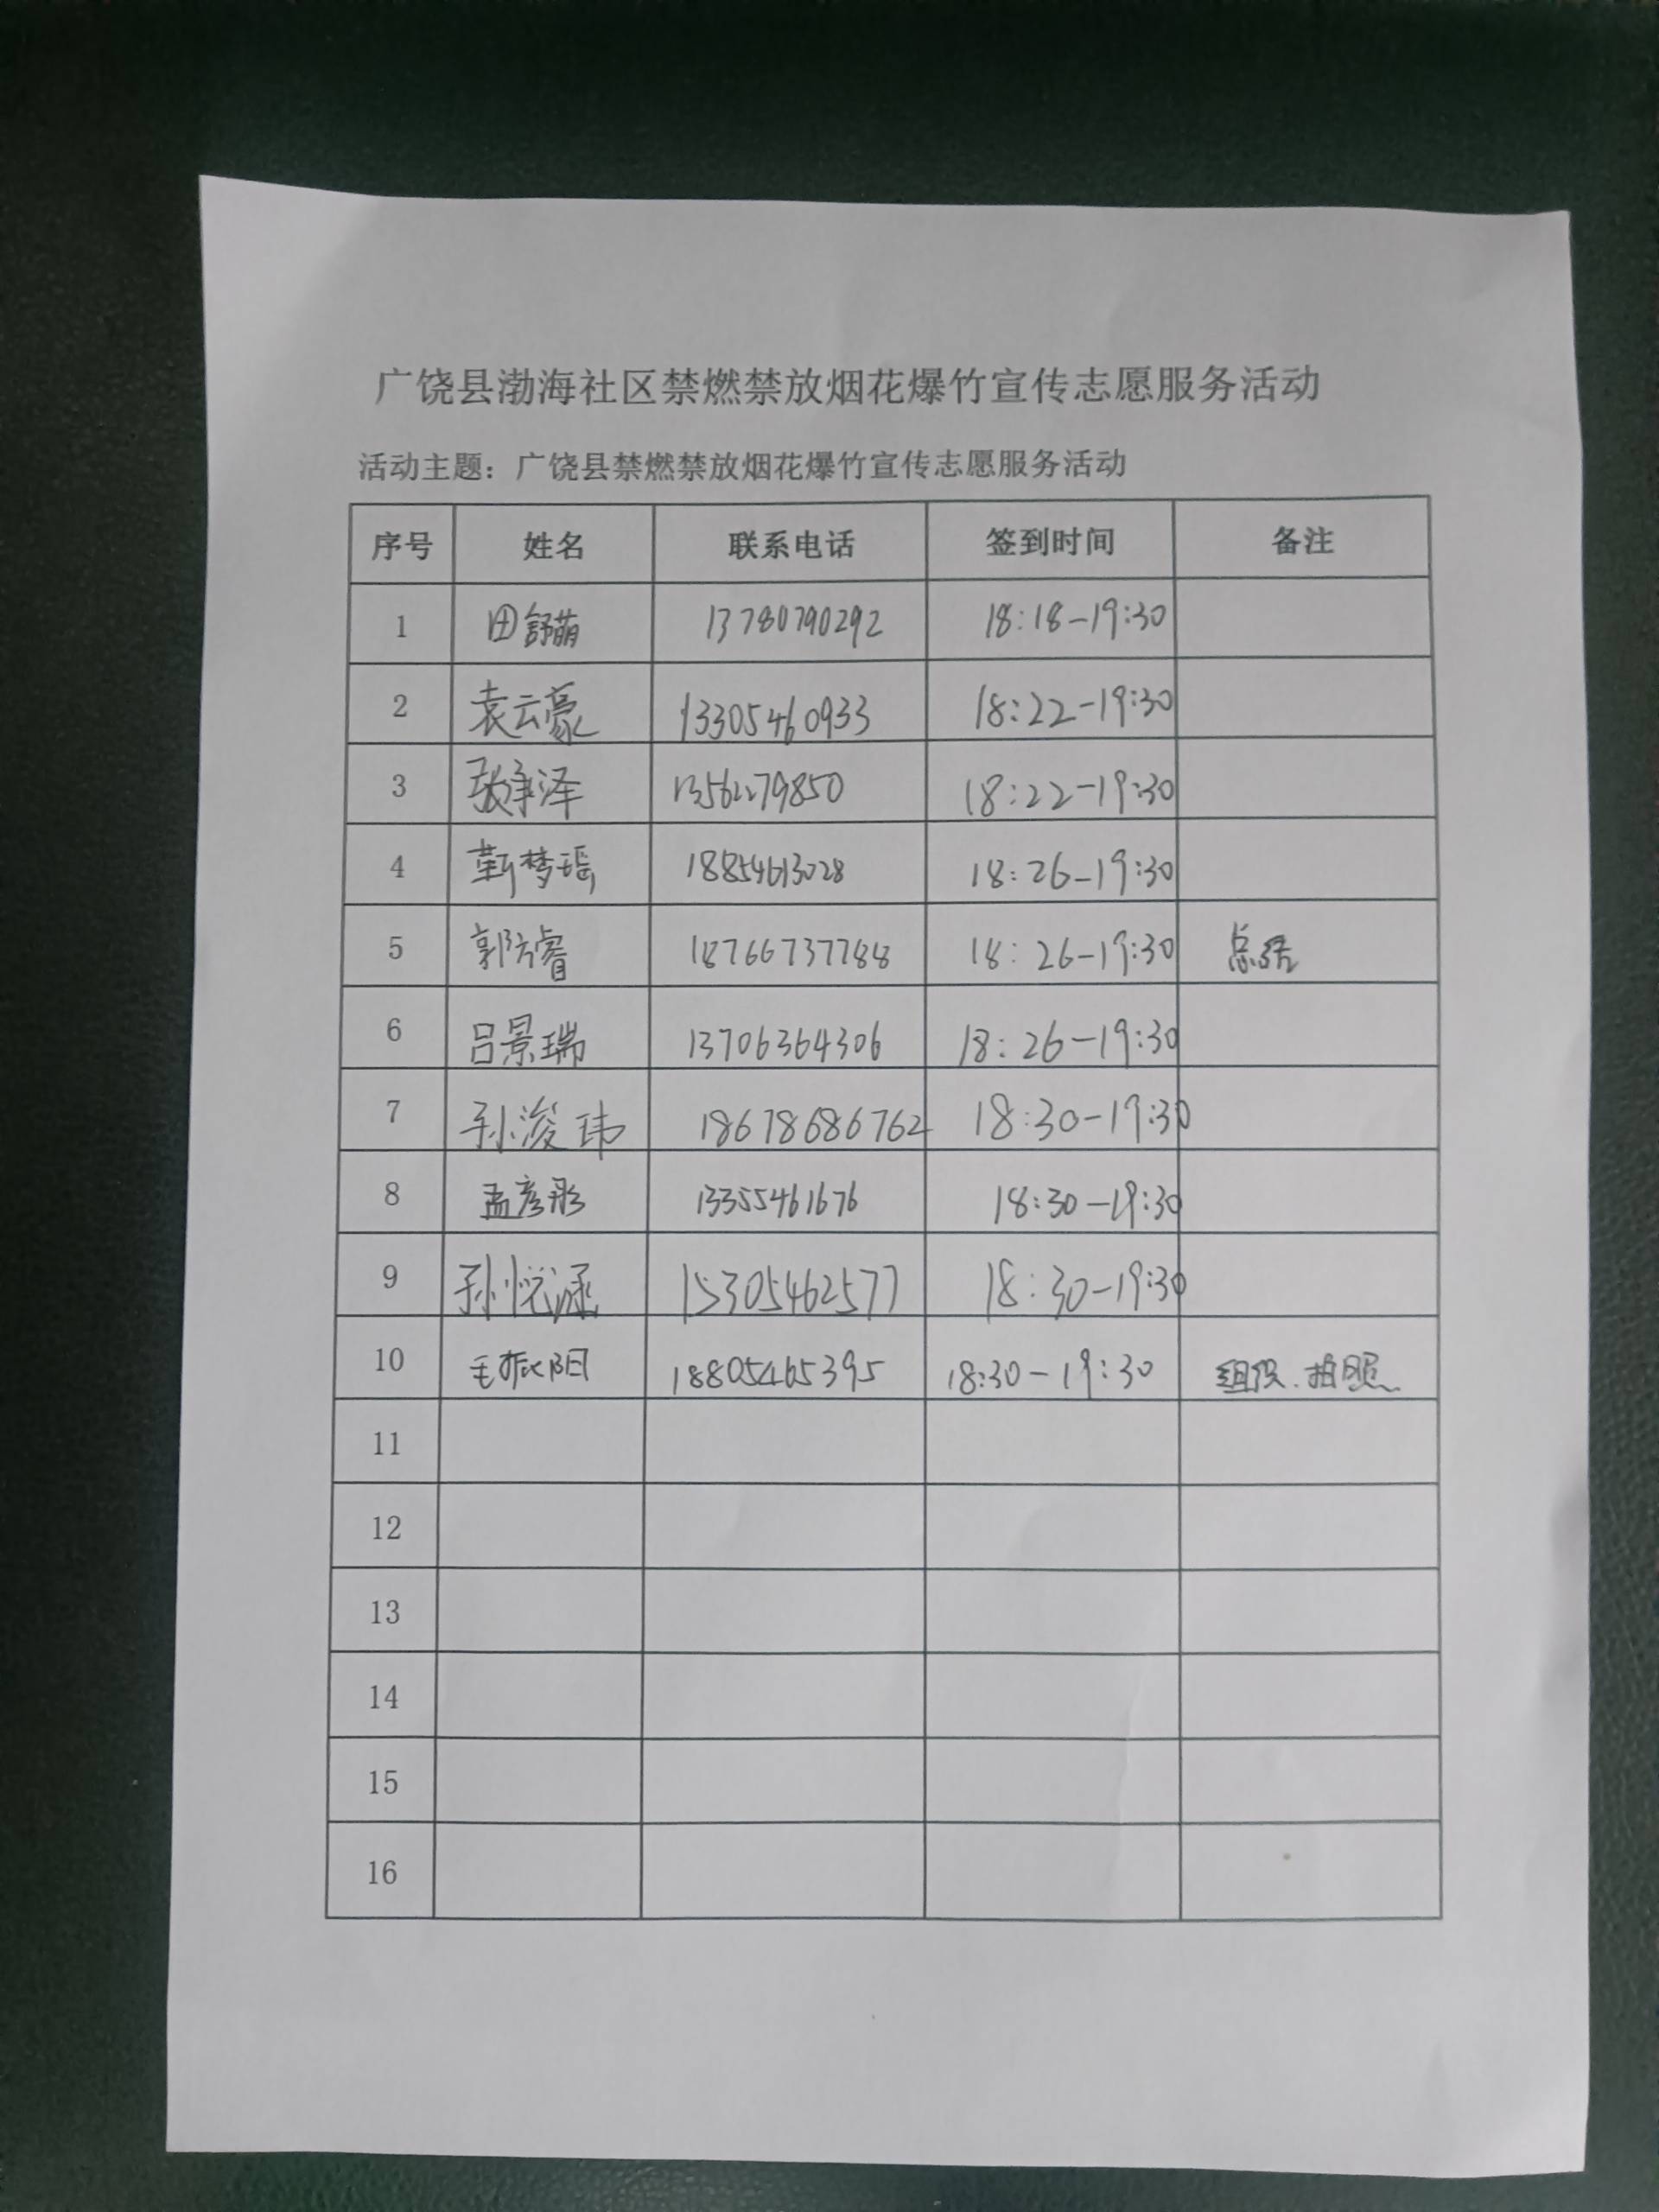 广饶县渤海社区禁燃禁放烟花爆竹宣传志愿服务活动
活动主题：广饶县禁燃禁放烟花爆竹宣传志愿服务活动
序号 姓名 联系电话 签到时间 备注
1 田舒萌 13780790292 18:18-19:30
2 袁云豪 13305460933 18:22-19:30
3 张承泽 13562279850 18:22-19:30
4 靳梦瑶 18854613028 18:26-19:30
5 郭方睿 18766737788 18:26-19:30 总结
6 吕景瑞 13706364306 18:26-19:30
7 孙浚玮 18678686762 18:30-19:30
8 孟彦彤 13355461676 18:30-19:30
9 孙悦涵 15305462577 18:30-19:30
10 毛振阳 18805465395 18:30-19:30 组织、拍照
11
12
13
14
15
16